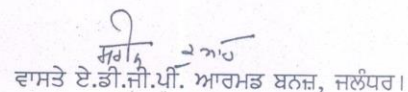 ਵਾਸਤੇ ਏ.ਡੀ.ਜੀ.ਪੀ. ਆਰਮਡ ਬਨਜ਼, ਜਲੰਧਰ।